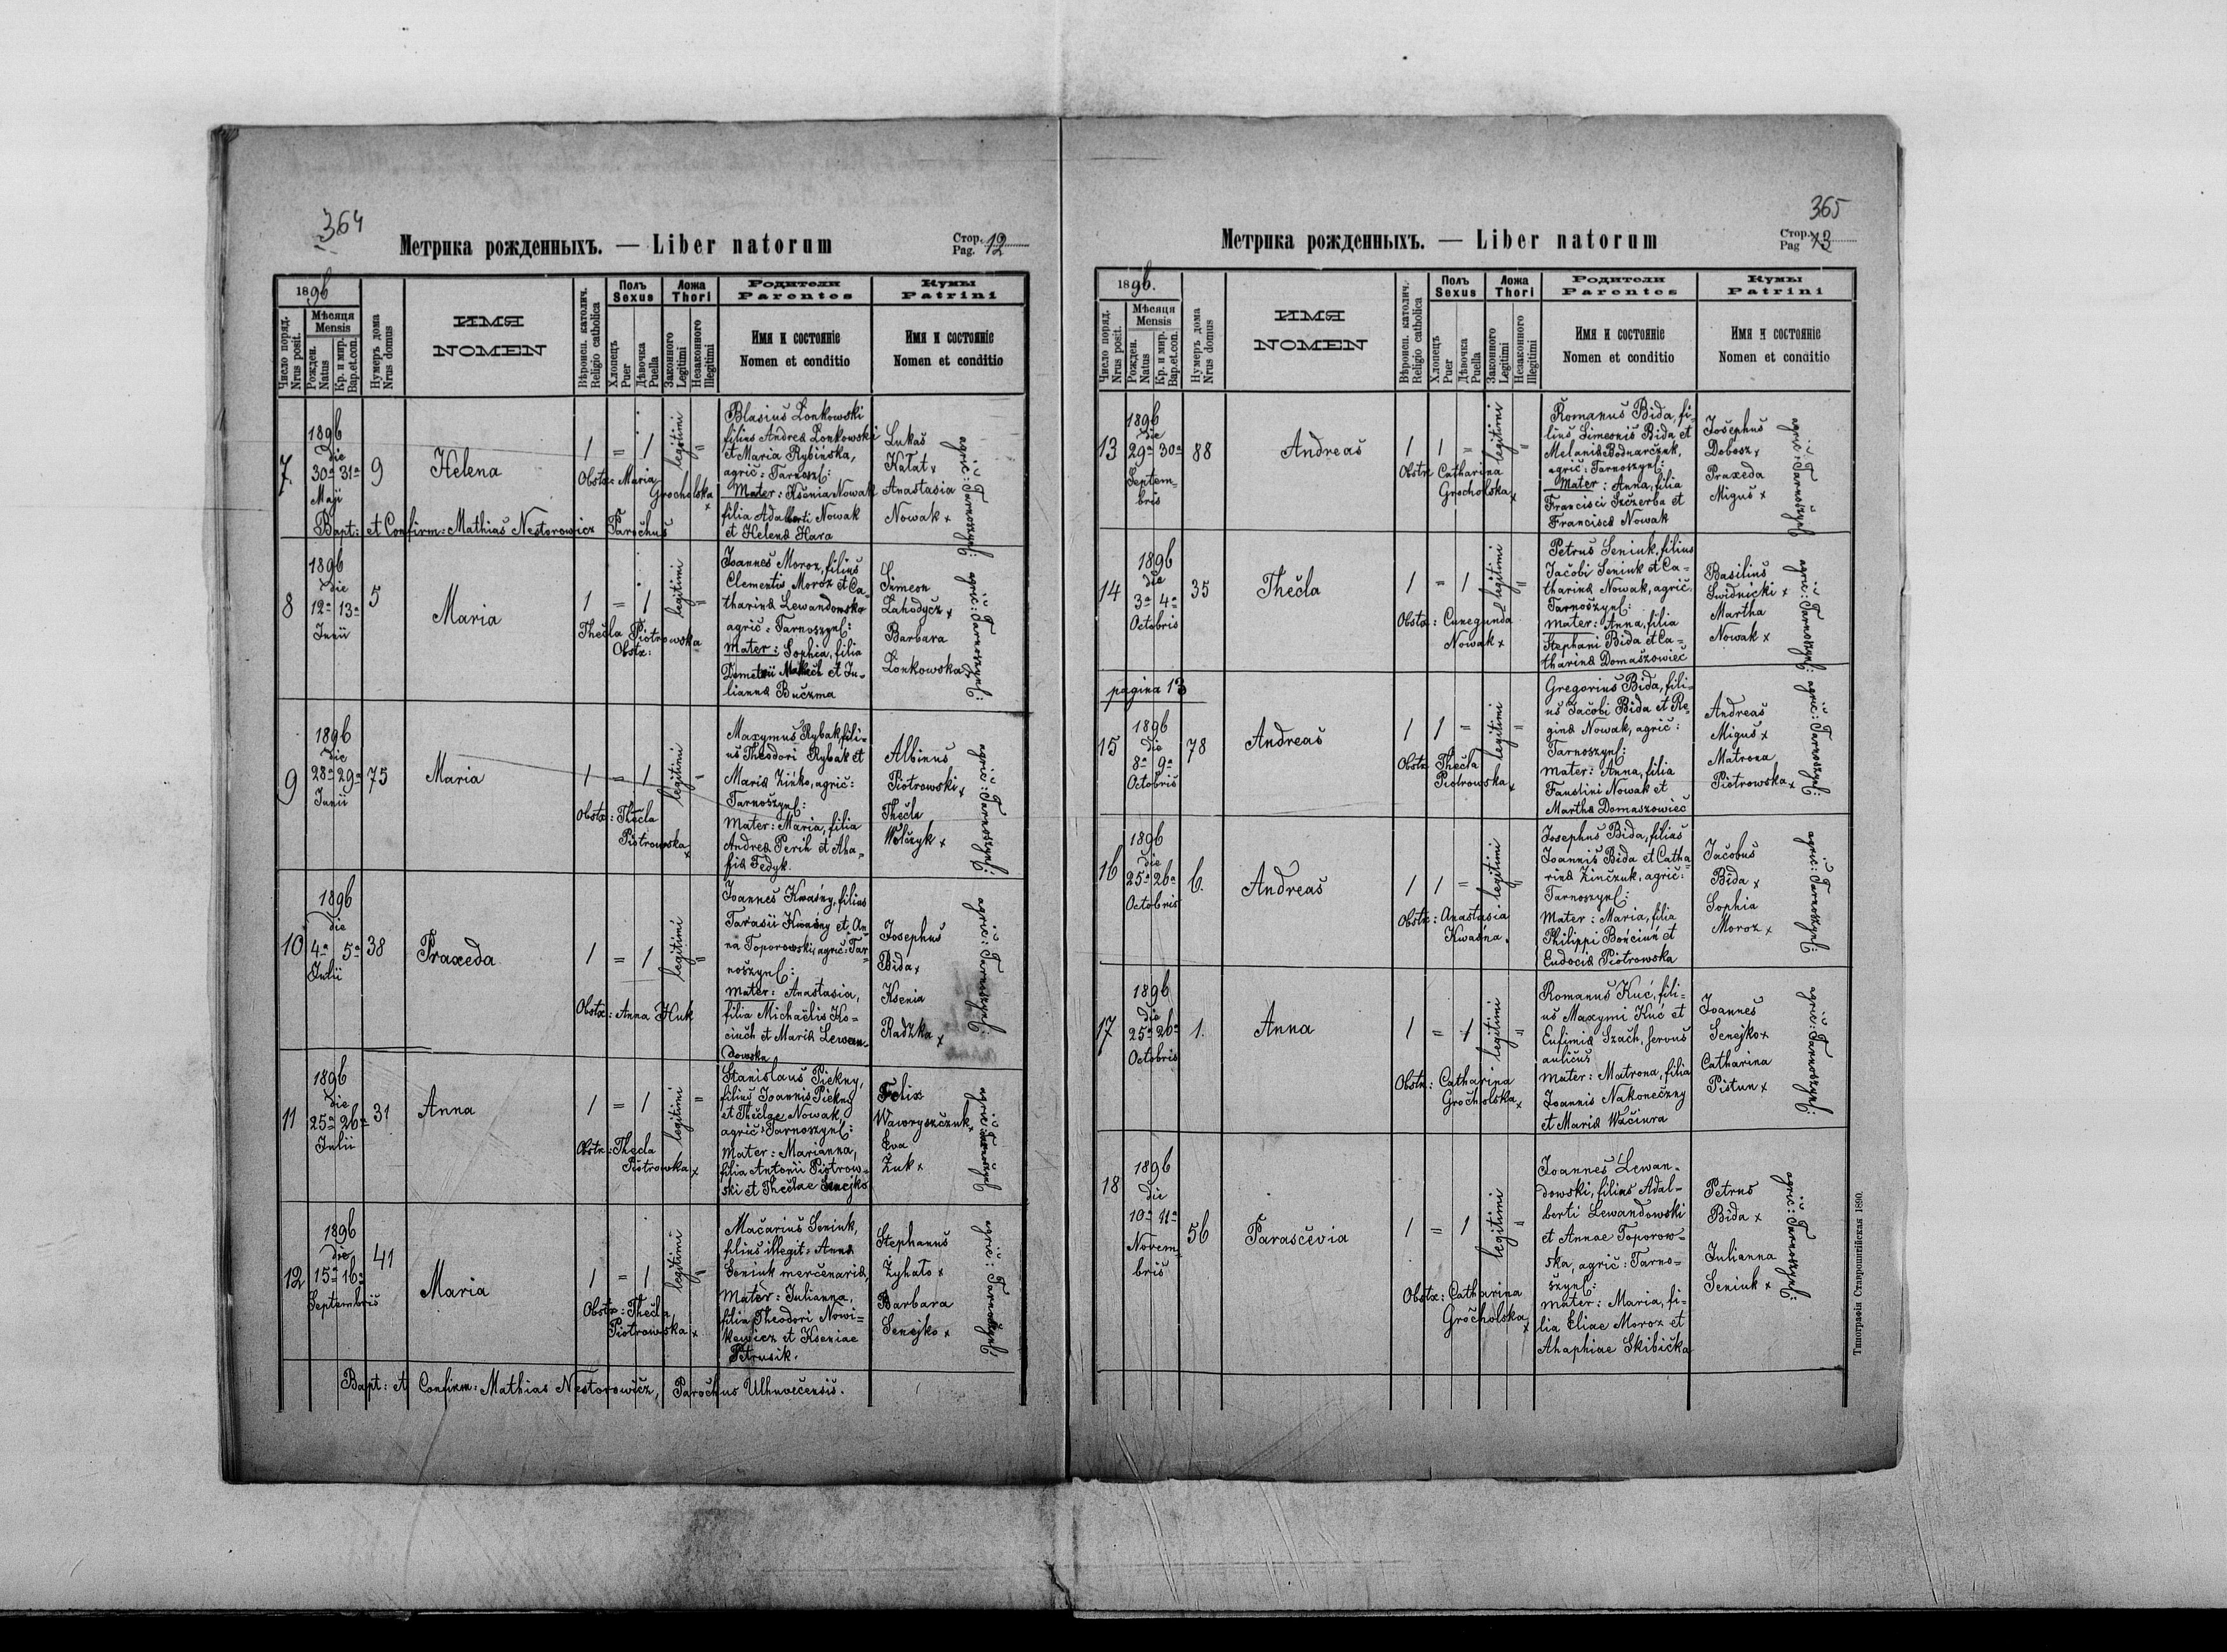 364
Метрика рожденныхъ. — Liber natorum
Стор.
Pag. 12
1896
Число поряд.
Nrus posit.
Мѣсяця
Mensis
Рожден.
Natus
Кр. и мир.
Bap.et.con.
Нумеръ дома
Nrus domus
ИМЯ
NOMEN
Вѣроисп. католич.
Religio catholica
Полъ
Sexus
Хлопецъ
Puer
Дѣвочка
Puella
Ложа
Thori
Законного
Legitimi
Незаконного
Illegitimi
Родители
Parentes
Имя и состоянie
Nomen et conditio
Кумы
Patrini
Имя и состоянie
Nomen et conditio
7
1896
die
30a 31a
Maji
9
Helena
1 = 1 legitimi "
Obstx: Maria
Grocholska x
Blasius Lonkowski
filius Andrea Lonkowski
et Maria Rybińska,
agric: Tarnosz:
Mater: Ksenia Nowak
filia Adalberti Nowak
et Helena Hara
Lukas
Katat x
Anastasia
Nowak x
agric: Tarnoszyn:
Bapt: et Confirm: Mathias Nestorowicz Parochus
8
1896
die
12a 13a
Junii
5
Maria
1 = 1 legitimi "
Thecla Piotrowska
Obstx:
Joannes Moroz, filius
Clementis Moroz et Ca-
tharina Lewandowska
agric: Tarnoszyn:
Mater: Sophia, filia
et Ju-
lianna Buczma
Simeon
Zahodycz x
Barbara
Lonkowska x
agric: Tarnoszyn:
9
1896
die
28a 29a
Junii
75
Maria
1 = 1 legitimi "
Obstx: Thecla
Piotrowska x
Maxymus Rybak, fili-
us Theodori Rybak et
Maria Zińko, agric:
Tarnoszyn:
Mater: Maria, filia
Andrea Perih et Aha-
fia Fedyk.
Albinus
Piotrowski x
Thecla
Wolczyk x
agric: Tarnoszyn:
10
1896
die
4a 5a
Julii
38
Praxeda
1 = 1 legitimi "
Obstx: Anna Huk
Joannes Kwasny, filius
Tarasii Kwasny et An-
na Toporowski, agric: Tar-
noszyn:
Mater: Anastasia,
filia Michaelis Ko-
ciuch et Maria Lewan-
dowska
Josephus
Bida x
Ksenia
Radzka x
agric: Tarnoszyn:
11
1896
die
25a 26a
Julii
31
Anna
1 = 1 legitimi =
Obstx: Thecla
Piotrowska x
Stanislaus Piekny,
filius Joannis Piekny
et Theclae Nowak,
agric: Tarnoszyn:
Mater: Marianna,
filia Antonii Piotrow-
ski et Theclae Senejko
Felix
Waworyszczuk x
Eva
Zuk x
agric: Tarnoszyn:
12
1896
die
15a 16a
Septembris
41
Maria
1 = 1 legitimi "
Obstx: Thecla
Piotrowska x
Macarius Seniuk,
filius illegit: Anna
Seniuk mercenaria,
Mater: Julianna,
filia Theodori Nowi-
kewicz et Kseniae
Petrusik.
Stephanus
Zyhalo x
Barbara
Senejko x
agric: Tarnoszyn:
Bapt: et Confirm: Mathias Nestorowicz, Parochus Uhnovecensis.
365
Метрика рожденныхъ. — Liber natorum
Стор.
Pag 13
1896.
Число поряд.
Nrus posit.
Мѣсяця
Mensis
Рожден.
Natus
Кр. и мир.
Bap.et.con.
Нумеръ дома
Nrus domus
ИМЯ
NOMEN
Вѣроисп. католич.
Religio catholica
Полъ
Sexus
Хлопецъ
Puer
Дѣвочка
Puella
Ложа
Thori
Законного
Legitimi
Незаконного
Illegitimi
Родители
Parentes
Имя и состоянie
Nomen et conditio
Кумы
Patrini
Имя и состоянie
Nomen et conditio
13
1896
die
29a 30a
Septem-
bris
88
Andreas
1 1 = legitimi "
Obstx Catharina
Grocholska x
Romanus Bida, fi-
lius Simeonis Bida et
Melania Bodnarczuk,
agric: Tarnoszyn:
Mater: Anna, filia
Francisci Szczerba et
Francisca Nowak
Josephus
Dobosz x
Praxeda
Migus x
agric: Tarnoszyn:
14
1896
die
3a 4a
Octobris
35
Thecla
1 = 1 legitimi "
Obstx: Cunegunda
Nowak x
Petrus Seniuk, filius
Jacobi Seniuk et Ca-
tharina Nowak, agric.
Tarnoszyn:
Mater: Anna, filia
Stephani Bida et Ca-
tharina Domaszowiec
Basilius
Swidnicki x
Martha
Nowak x
agric: Tarnoszyn:
pagina 13
15
1896
die
8a 9a
Octobris
78
Andreas
1 1 = legitimi "
Obstx Thecla
Piotrowska x
Gregorius Bida, fili-
us Jacobi Bida et Re-
gina Nowak, agric:
Tarnoszyn:
Mater: Anna, filia
Faustini Nowak et
Martha Domaszowiec
Andreas
Migus x
Matrona
Piotrowska x
agric: Tarnoszyn:
16
1896
die
25a 26a
Octobris
6.
Andreas
1 1 = legitimi "
Obstx: Anastasia
Kwasna.
Josephus Bida, filius
Joannis Bida et Catha-
rina Zinczuk, agric:
Tarnoszyn:
Mater: Maria, filia
Philippi Bońciuń et
Eudocia Piotrowska
Jacobus
Bida x
Sophia
Moroz x
agric: Tarnoszyn:
17
1896
die
25a 26a
Octobris
1.
Anna
1 = 1 legitimi "
Obstx: Catharina
Grocholska x
Romanus Kuć, fili-
us Maxymi Kuć et
Eufimia Szach, servus
aulicus
Mater: Matrona, filia
Joannis Nakoneczny
et Maria Waciura
Joannes
Senejko x
Catharina
Pistun x
agric: Tarnoszyn:
18
1896
die
10a 11a
Novem-
bris
56
Parascevia
1 = 1 legitimi "
Obstx: Catharina
Grocholska x
Joannes Lewan-
dowski, filius Adal-
berti Lewandowski
et Annae Toporow-
ska, agric: Tarno-
szyn:
Mater: Maria, fi-
lia Eliae Moroz et
Ahaphiae Skibicka
Petrus
Bida x
Julianna
Seniuk x
agric: Tarnoszyn:
Типографія Ставропигійская 1890.